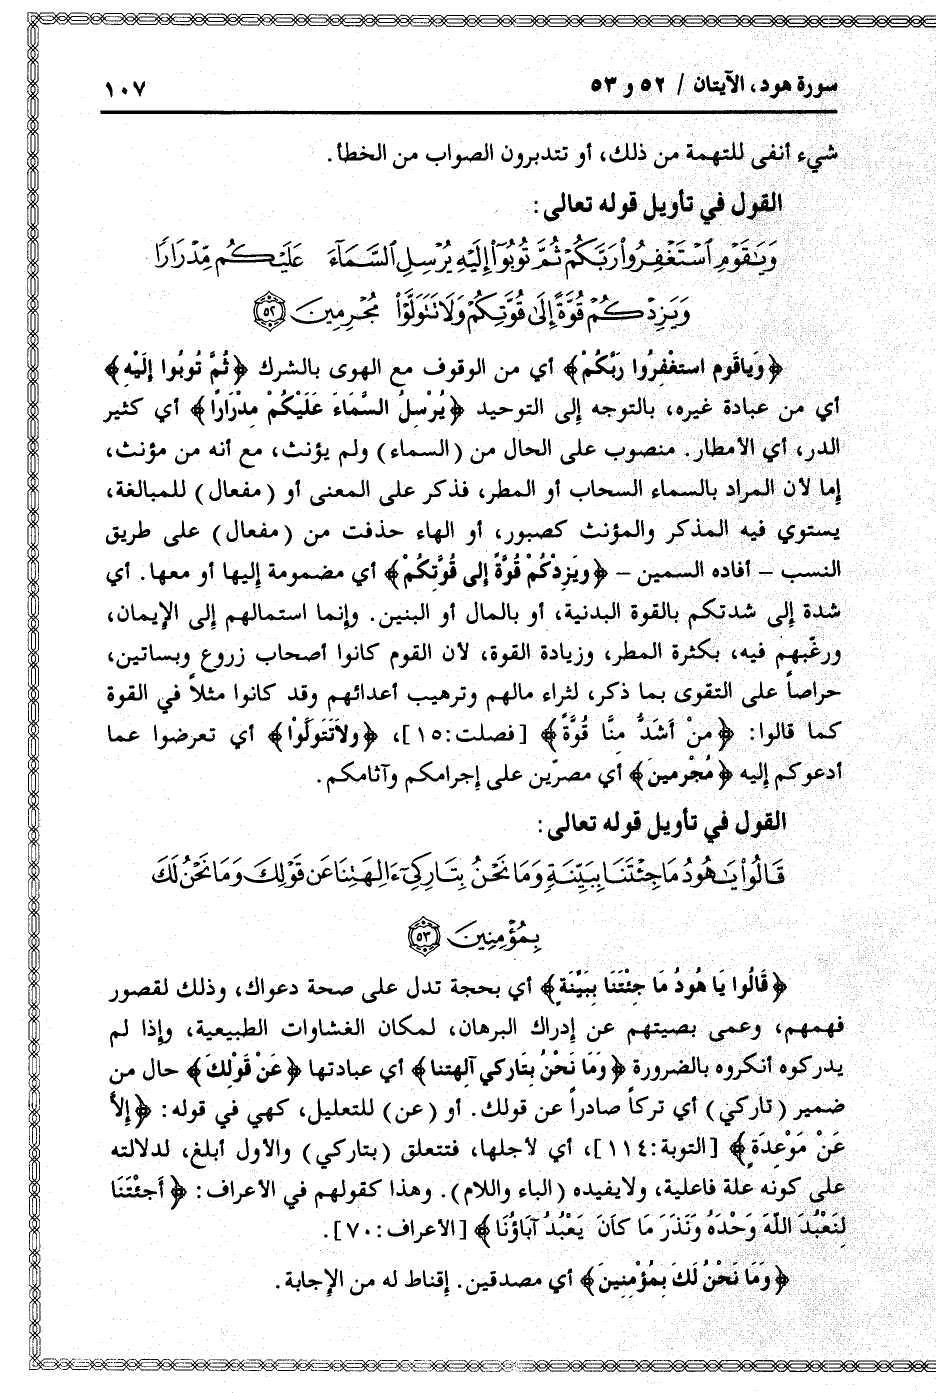 سورة هود، الآيتان / ٥٢ و ٥٣
١٠٧
شيء أنفى للتهمة من ذلك، أو تتدبرون الصواب من الخطأ.
القول في تأويل قوله تعالى:
وَيَـٰقَوْمِ ٱسْتَغْفِرُوا۟ رَبَّكُمْ ثُمَّ تُوبُوٓا۟ إِلَيْهِ يُرْسِلِ ٱلسَّمَآءَ عَلَيْكُم مِّدْرَارًا
وَيَزِدْكُمْ قُوَّةً إِلَىٰ قُوَّتِكُمْ وَلَا تَتَوَلَّوْا۟ مُجْرِمِينَ ٥٢
﴿وَيَاقَومِ استغْفِرُوا رَبَّكُمْ﴾ أي من الوقوف مع الهوى بالشرك ﴿ثُمَّ تُوبُوا إلَيْهِ﴾
أي من عبادة غيره، بالتوجه إلى التوحيد ﴿يُرْسِلُ السَّمَاءَ عَلَيْكُمْ مِدْرَارًا﴾ أي كثير
الدر، أي الأمطار. منصوب على الحال من (السماء) ولم يؤنث، مع أنه من مؤنث،
إما لأن المراد بالسماء السحاب أو المطر، فذكر على المعنى أو (مفعال) للمبالغة،
يستوي فيه المذكر والمؤنث كصبور، أو الهاء حذفت من (مفعال) على طريق
النسب – أفاده السمين – ﴿ويَزِدْكُمْ قُوَّةً إلى قُوَّتِكُمْ﴾ أي مضمومة إليها أو معها. أي
شدة إلى شدتكم بالقوة البدنية، أو بالمال أو البنين. وإنما استمالهم إلى الإيمان،
ورغّبهم فيه، بكثرة المطر، وزيادة القوة، لأن القوم كانوا أصحاب زروع وبساتين،
حراصاً على التقوى بما ذكر، لثراء مالهم وترهيب أعدائهم وقد كانوا مثلاً في القوة
كما قالوا: ﴿مَنْ أَشَدُّ مِنَّا قُوَّةً﴾ [فصلت:١٥]، ﴿ولاَتَتَولَّوْا﴾ أي تعرضوا عما
أدعوكم إليه ﴿مُجْرمينَ﴾ أي مصرّين على إجرامكم وآثامكم.
القول في تأويل قوله تعالى:
قَالُوا۟ يَـٰهُودُ مَا جِئْتَنَا بِبَيِّنَةٍ وَمَا نَحْنُ بِتَارِكِىٓ ءَالِهَتِنَا عَن قَوْلِكَ وَمَا نَحْنُ لَكَ
بِمُؤْمِنِينَ ٥٣
﴿قَالُوا يَا هُودُ مَا جِئْتَنَا بِبَيِّنَةٍ﴾ أي بحجة تدل على صحة دعواك، وذلك لقصور
فهمهم، وعمى بصيتهم عن إدراك البرهان، لمكان الغشاوات الطبيعية، وإذا لم
يدركوه أنكروه بالضرورة ﴿وَمَا نَحْنُ بِتَاركي آلِهتنا﴾ أي عبادتها ﴿عَنْ قَولِكَ﴾ حال من
ضمير (تاركي) أي تركاً صادراً عن قولك. أو (عن) للتعليل، كهي في قوله: ﴿إلاَّ
عَنْ مَوْعِدَةٍ﴾ [التوبة:١١٤]، أي لأجلها، فتتعلق (بتاركي) والأول أبلغ، لدلالته
على كونه علة فاعلية، ولايفيده (الباء واللام). وهذا كقولهم في الأعراف: ﴿أَجِئْتَنَا
لِنَعْبُدَ اللَّهَ وَحْدَهُ وَنَذَرَ مَا كَانَ يَعْبُدُ آبَاؤُنَا﴾ [الأعراف:٧٠].
﴿وَمَا نَحْنُ لَكَ بِمُؤْمِنِينَ﴾ أي مصدقين. إقناط له من الإجابة.